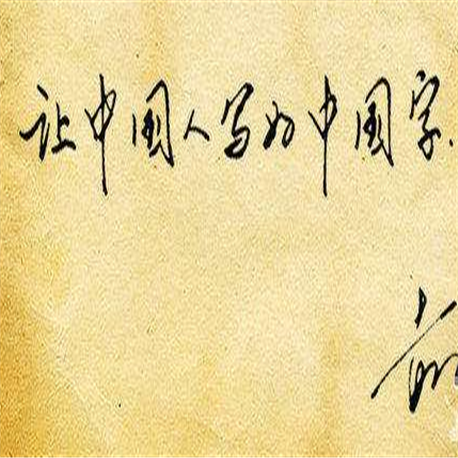 让中国人写好中国字.